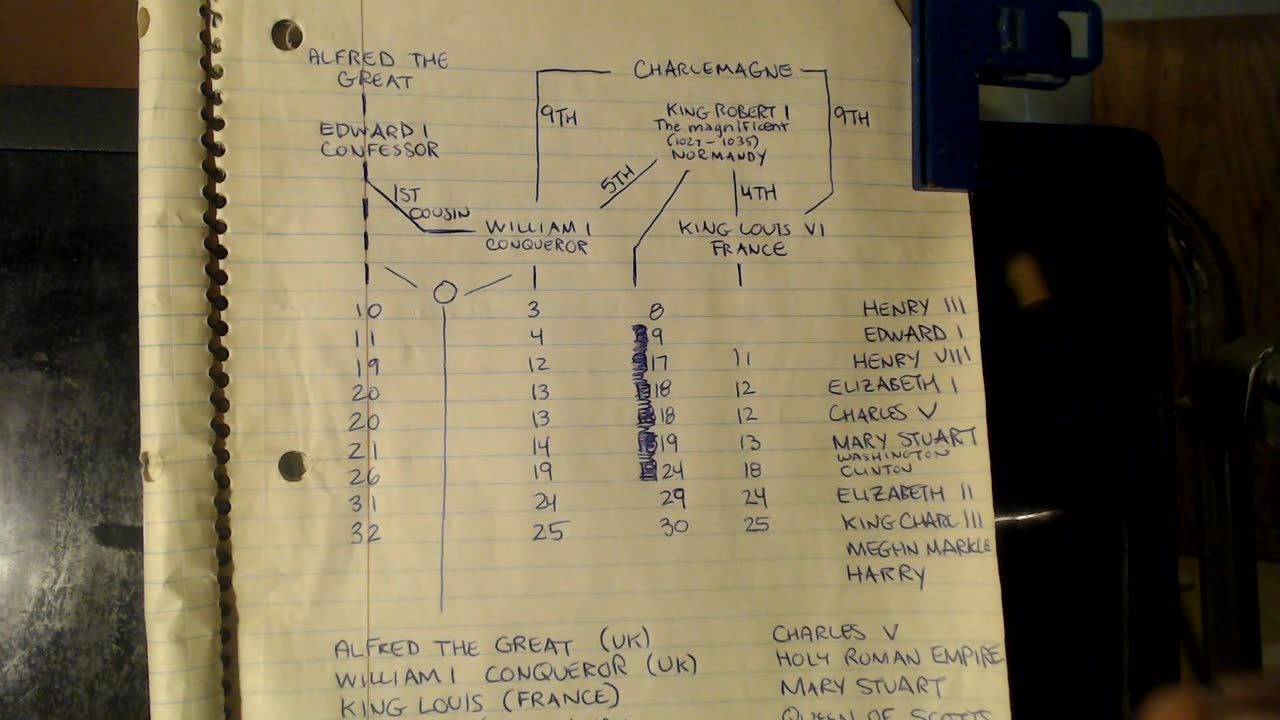 ALFRED THE
GREAT
CHARLEMAGNE
9TH
KING ROBERT I
The magnificent
(1027-1035)
NORMANDY
9TH
EDWARD I
CONFESSOR
5TH
4TH
1ST
COUSIN
WILLIAM I
CONQUEROR
KING LOUIS VI
FRANCE
10 3 8 HENRY III
11 4 9 EDWARD I
19 12 17 11 HENRY VIII
20 13 18 12 ELIZABETH I
20 13 18 12 CHARLES V
21 14 19 13 MARY STUART
WASHINGTON
26 19 24 18 CLINTON
31 24 29 24 ELIZABETH II
32 25 30 25 KING CHARL III
MEGHN MARKLE
HARRY
ALFRED THE GREAT (UK)
WILLIAM I CONQUEROR (UK)
KING LOUIS (FRANCE)
CHARLES V
HOLY ROMAN EMPIRE
MARY STUART
QUEEN OF SCOTS